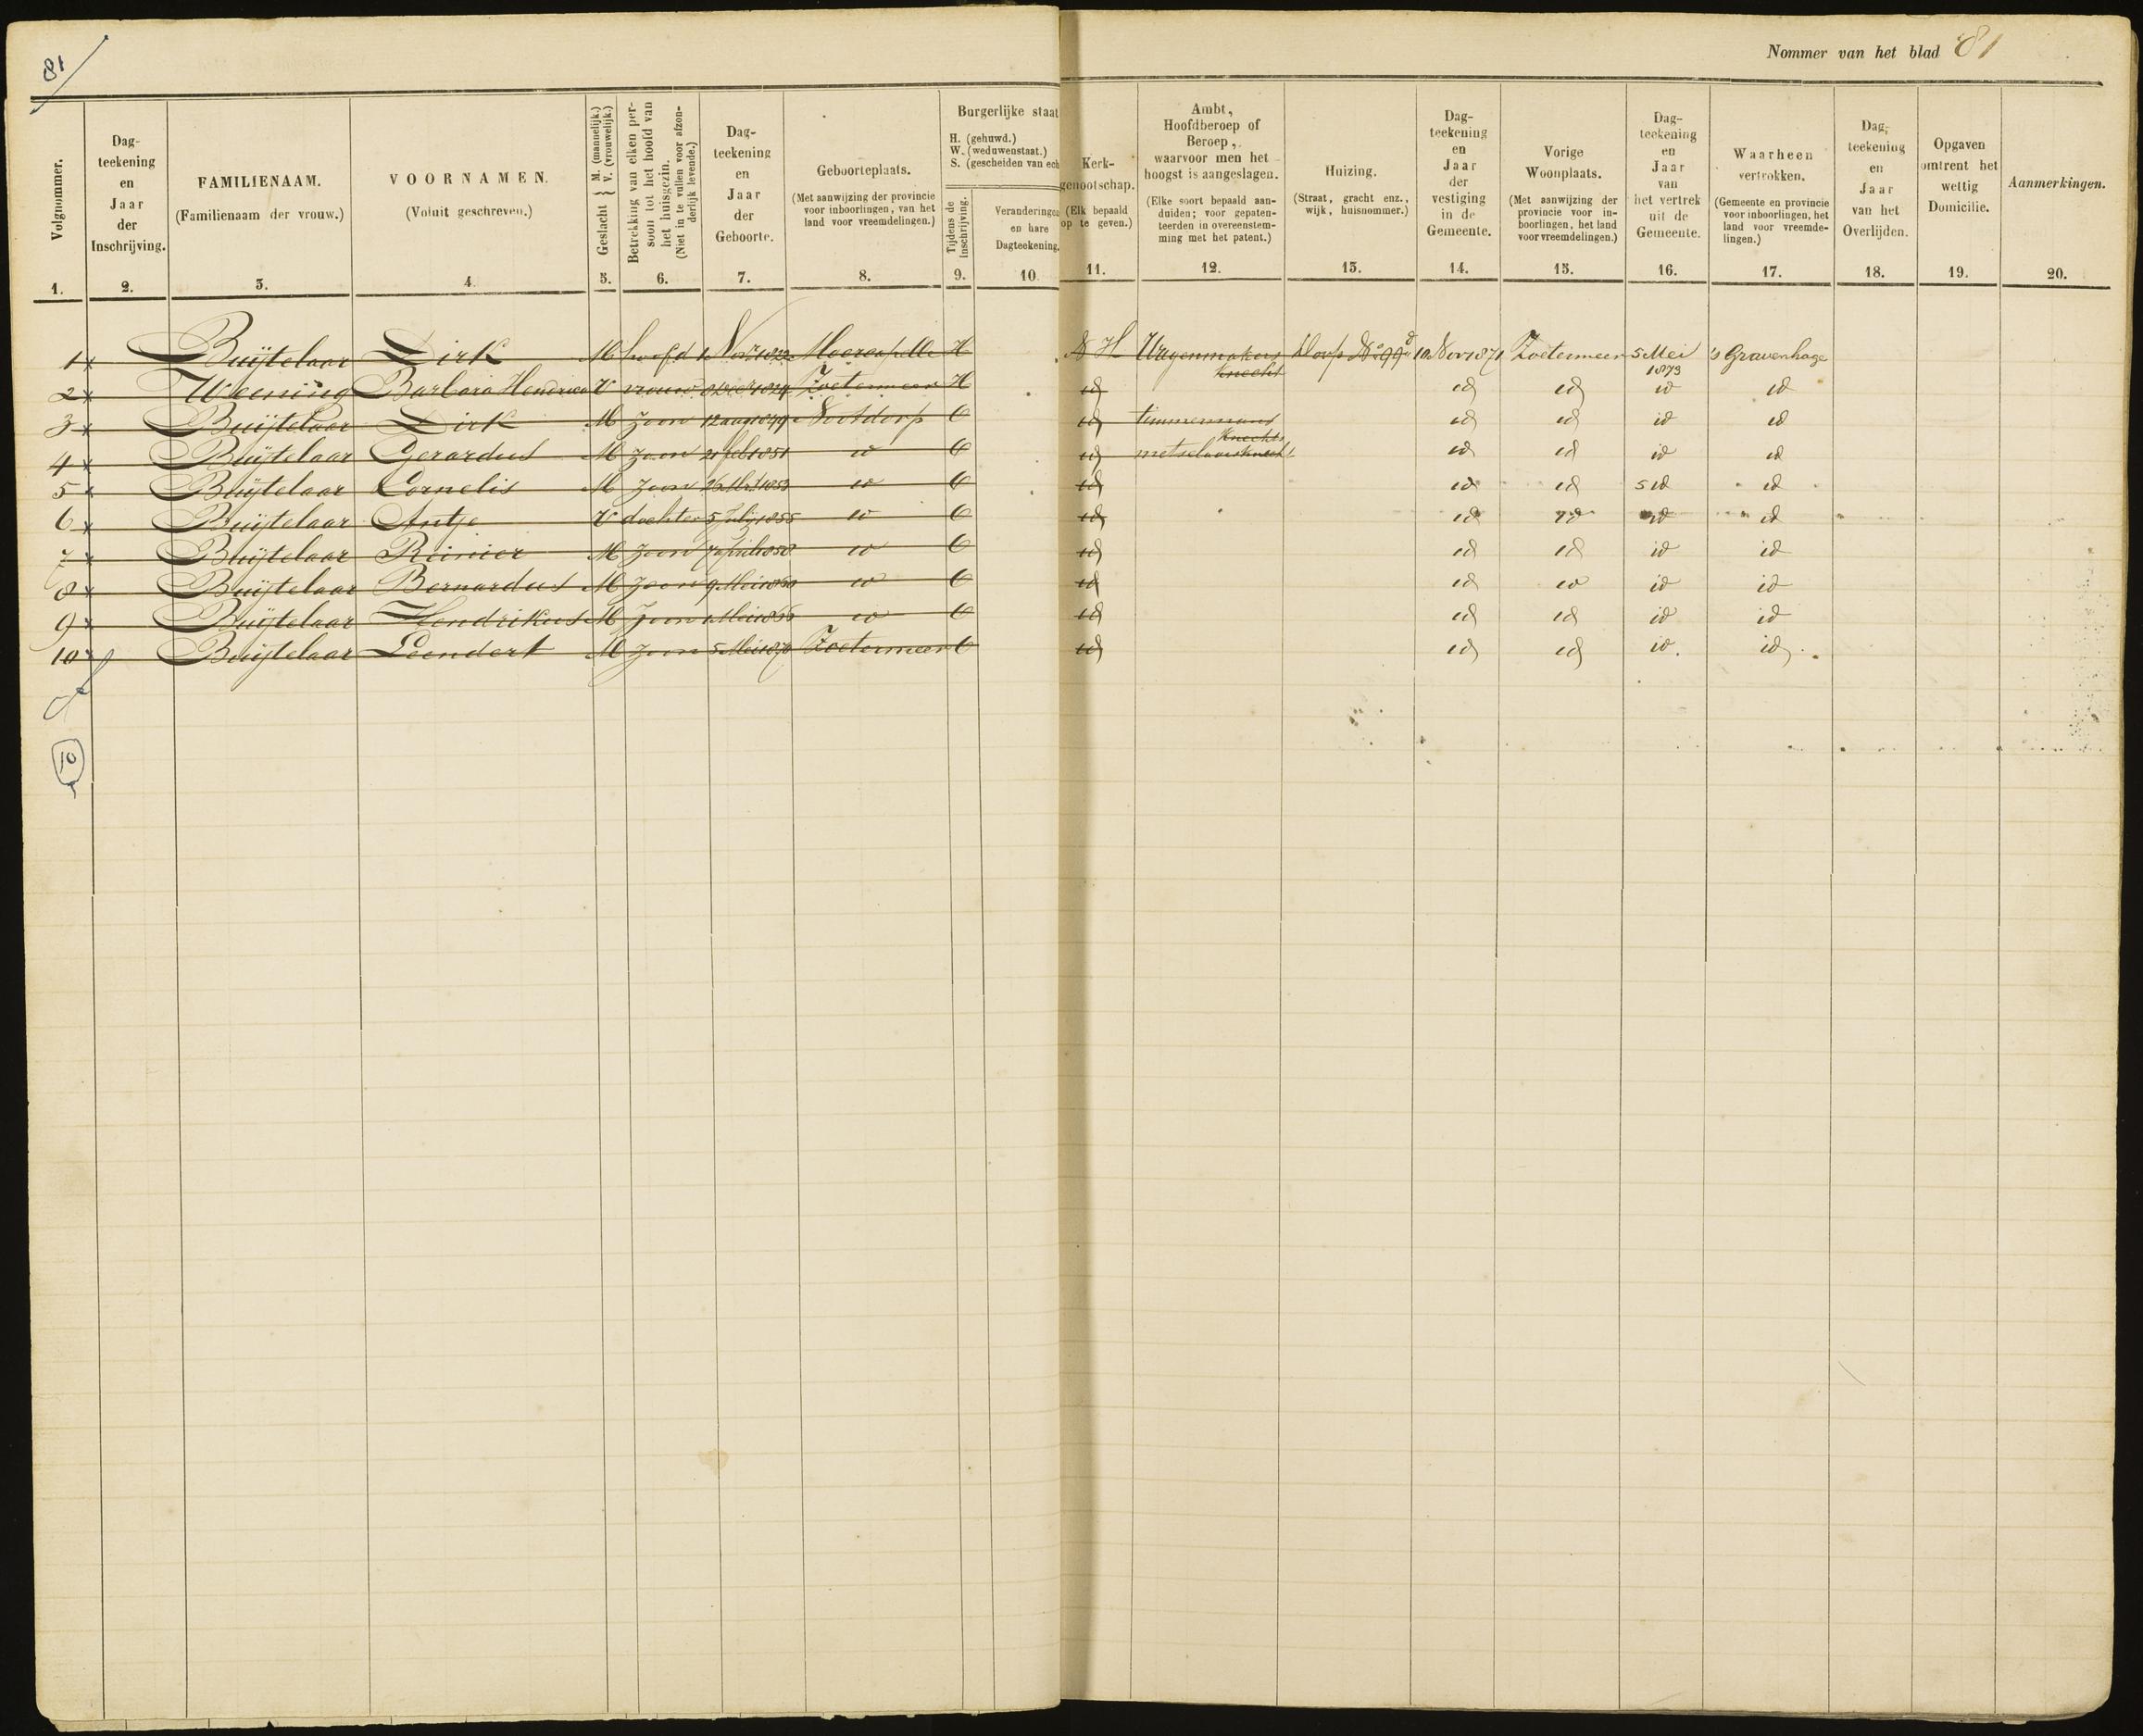 81
Nommer van het blad 81
Volgnommer.
1.
Dag-
teekening
en
Jaar
der
Inschrijving.
2.
FAMILIENAAM.
(Familienaam der vrouw.)
3.
VOORNAMEN.
(Voluit geschreven.)
4.
Geslacht { M. (mannelijk.)
V. (vrouwelijk.)
5.
Betrekking van elken per-
soon tot het hoofd van
het huisgezin.
(Niet in te vullen voor afzon-
derlijk levende.)
6.
Dag-
teekening
en
Jaar
der
Geboorte.
7.
Geboorteplaats.
(Met aanwijzing der provincie
voor inboorlingen, van het
land voor vreemdelingen.)
8.
Burgerlijke staat
H. (gehuwd.)
W. (weduwenstaat.)
S. (gescheiden van ech
Tijdens de
Inschrijving.
9.
Veranderingen
en hare
Dagteekening.
10.
Kerk-
genootschap.
(Elk bepaald
op te geven.)
11.
Ambt,
Hoofdberoep of
Beroep,
waarvoor men het
hoogst is aangeslagen.
(Elke soort bepaald aan-
duiden; voor gepaten-
teerden in overeenstem-
ming met het patent.)
12.
Huizing.
(Straat, gracht enz.,
wijk, huisnommer.)
13.
Dag-
teekening
en
Jaar
der
vestiging
in de
Gemeente.
14.
Vorige
Woonplaats.
(Met aanwijzing der
provincie voor in-
boorlingen, het land
voor vreemdelingen.)
15.
Dag-
teekening
en
Jaar
van
het vertrek
uit de
Gemeente.
16.
Waarheen
vertrokken.
(Gemeente en provincie
voor inboorlingen, het
land voor vreemde-
lingen.)
17.
Dag-
teekening
en
Jaar
van het
Overlijden.
18.
Opgaven
omtrent het
wettig
Domicilie.
19.
Aanmerkingen.
20.
1 x Buijtelaar Dirk M hoofd 1 Nov 1822 Moercapelle H N H Wagenmakers knecht Dorp No 99 d 10 Nov 1871 Zoetermeer 5 Mei 1873 's Gravenhage
2 x Weening Barbara Hendrica V vrouw 1824 Zoetermeer H id id id id id
3 x Buijtelaar Dirk M zoon 12 aug 1849 Nootdorp O id timmermans knecht id id id id
4 x Buijtelaar Gerardus M zoon 21 feb 1851 id O id metselaarsknecht id id id id
5 x Buijtelaar Cornelis M zoon 26 Mrt 1853 id O id id id 5 id id
6 x Buijtelaar Antje V dochter 5 July 1855 id O id id id id id
7 x Buijtelaar Reinier M zoon 7 april 1858 id O id id id id id
8 x Buijtelaar Bernardus M zoon 9 Mei 1860 id O id id id id id
9 x Buijtelaar Hendrikus M zoon 1 Mei 1866 id O id id id id id
10 x Buijtelaar Leendert M zoon 5 Mei 1870 Zoetermeer O id id id id id
10